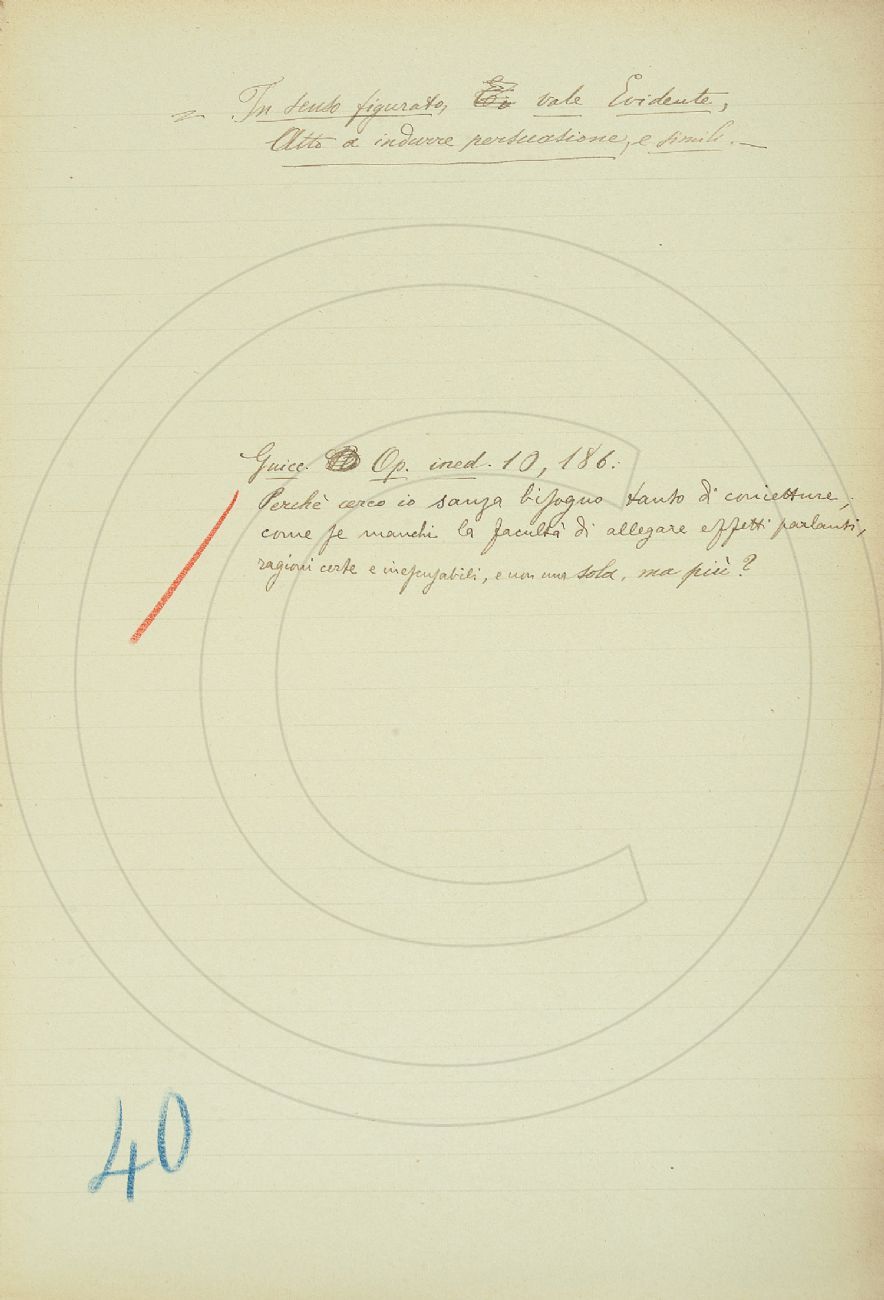 = In senso figurato, vale Evidente,
Atto a indurre persuasione, e simili. —
Guicc. Op. ined. 10, 186:
Perchè cerco io sanza bisogno tanto di conietture,
come se manchi la facultà di allegare effetti parlanti,
ragioni certe e inescusabili, e non una sola, ma più?
40